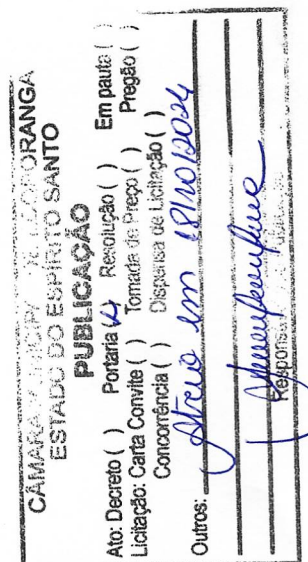 CÂMARA MUNICIPAL ORANGA
ESTADO DO ESPÍRITO SANTO
PUBLICAÇÃO
Ato: Decreto ( ) Portaria (✓) Resolução ( ) Em pauta ( )
Licitação: Carta Convite ( ) Tomada de Preço ( ) Pregão ( )
Concorrência ( ) Dispensa de Licitação ( )
Outros: Átrio em 18/10/2024
Respons